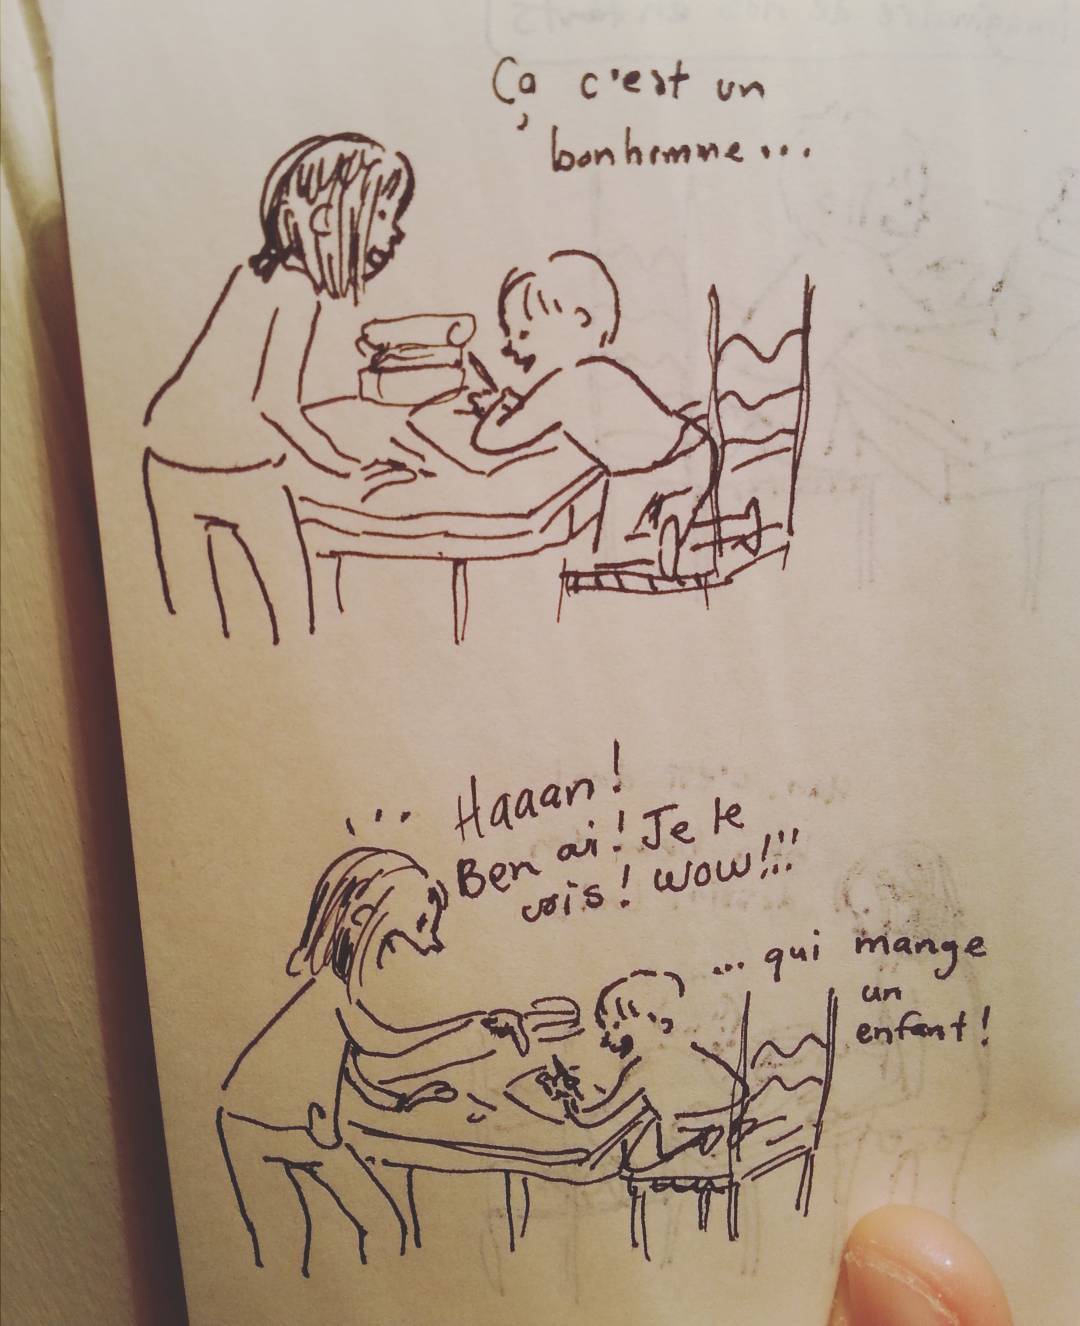 Ça c'est un
bonhomme...
Haaan!
Ben oui! Je le
vois! wow!!!
... qui mange
un
enfant!